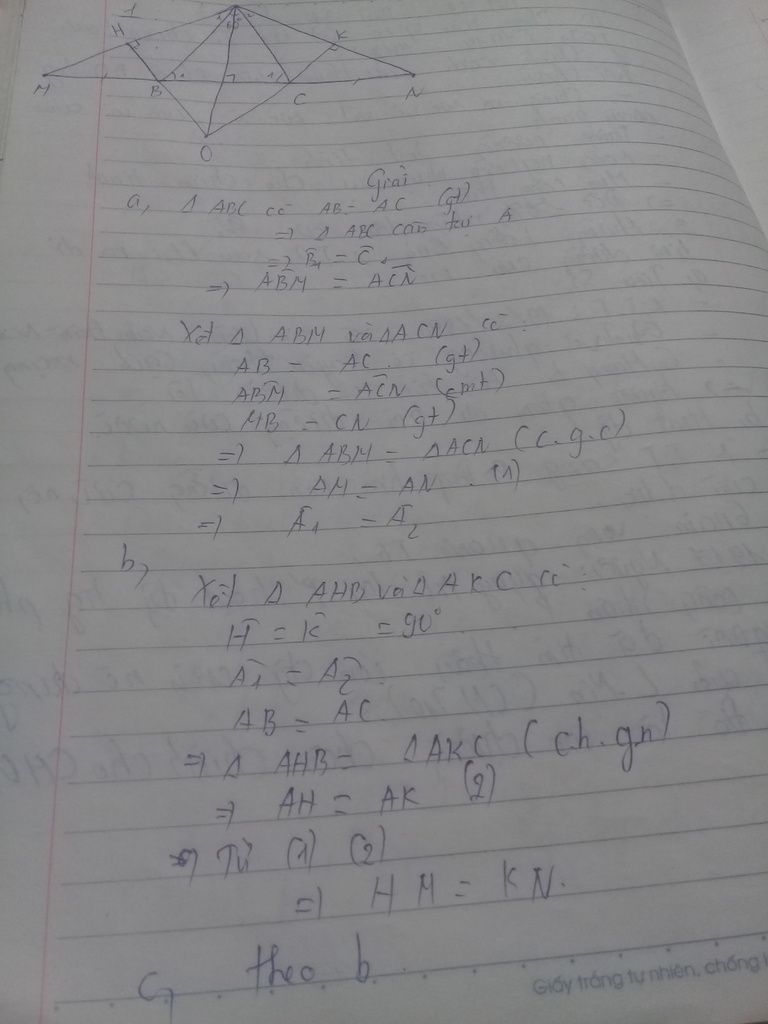 1
H
K
M
B
C
N
O
Giải
a, Δ ABC có AB = AC (gt)
=> Δ ABC cân tại A
=> B̂1 = Ĉ1
=> ABM̂ = ACN̂
Xét Δ ABM và Δ ACN có :
AB = AC (gt)
ABM̂ = ACN̂ (cmt)
MB = CN (gt)
=> Δ ABM = Δ ACN (c.g.c)
=> AM = AN (1)
=> Â1 = Â2
b,
Xét Δ AHB và Δ AKC có :
Ĥ = K̂ = 90°
Â1 = Â2
AB = AC
=> Δ AHB = Δ AKC (ch.gn)
=> AH = AK (2)
=> Từ (1) (2)
=> HM = KN.
c, theo b
Giấy trắng tự nhiên, chống